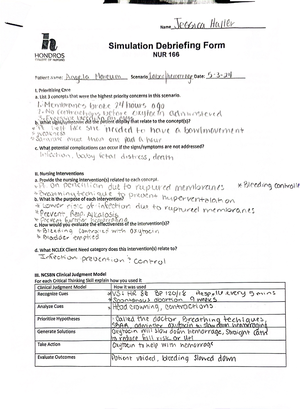 Name Jessica Haller
HONDROS
COLLEGE OF NURSING
Simulation Debriefing Form
NUR 166
Patient Name: Angela Scenario Date 5-3-24
I. Prioritizing Care
a. List 3 concepts that were the highest priority concerns in this scenario.
1. Membranes broke 24 hours ago
2. No contractions before oxytocin administered
b. What signs/symptoms did the patient display that relate to the concept(s)?
felt like she needed to have a bowel movement
more than one pad a hour
c. What potential complications can occur if the signs/symptoms are not addressed?
Infection, baby fetal distress, death
II. Nursing Interventions
a. Provide the nursing intervention(s) priority related to each concept.
on penicillin due to ruptured membranes * Bleeding controlled
Breathing technique to prevent hyperventilation
b. What is the purpose of each intervention?
Lower risk of infection due to ruptured membranes
Prevent Resp. Alkalosis
Prevent further
c. How would you evaluate the effectiveness of the intervention(s)?
Bleeding controlled with oxytocin
Bladder emptied
d. What NCLEX Client Need category does this intervention(s) relate to?
Infection prevention & Control
III. NCSBN Clinical Judgment Model
For each Critical Thinking Skill explain how you used it
Clinical Judgment Model How it was used
Recognize Cues VS: HR 88 BP 120/78 every 9 mins
Spontaneous abortion 9 weeks
Analyze Cues Head crowning, contractions
Prioritize Hypotheses Called the doctor, Breathing techniques,
SBAR, administer oxytocin to slow down hemorrhaging
Generate Solutions Oxytocin will slow down hemorrhage, Straight Cath
to reduce
Take Action Oxytocin to help with hemorrhage
Evaluate Outcomes Patient voided, bleeding slowed down